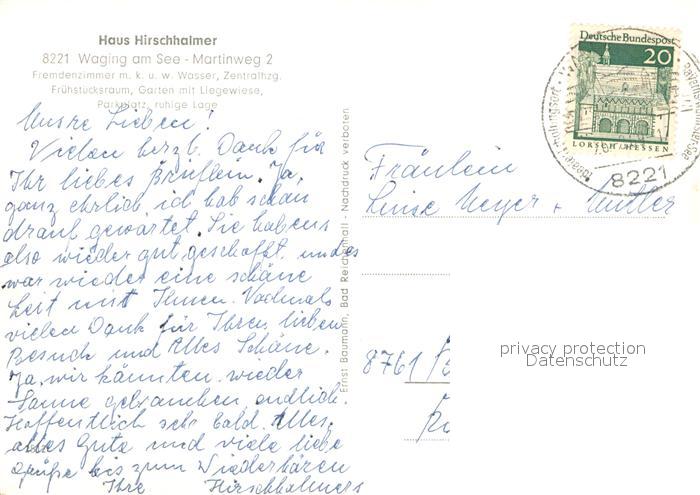 Haus Hirschhalmer
8221 Waging am See - Martinweg 2
Fremdenzimmer m. k. u. w. Wasser, Zentralhzg.
Frühstücksraum, Garten mit Liegewiese,
Parkplatz, ruhige Lage
Unsre Lieben!
Vielen herzl. Dank für
Ihr liebes Brieflein. Ja,
ganz ehrlich ich hab schon
drauf gewartet. Sie habens
also wieder gut geschafft. und es
war wieder eine schöne
Zeit mit Ihnen. Nochmals
vielen Dank für Ihren lieben
Besuch und Alles Schöne.
Ja, wir könnten wieder
Sonne gebrauchen, endlich.
Hoffentlich sehr bald. Alles,
alles Gute und viele liebe
Grüße bis zum Wiederhören
Ihre Hirschhalmers
Ernst Baumann, Bad Reichenhall - Nachdruck verboten
Deutsche Bundespost
20
LORSCH/HESSEN
8221
Fräulein
Luise Meyer + Mutter
8761
privacy protection
Datenschutz